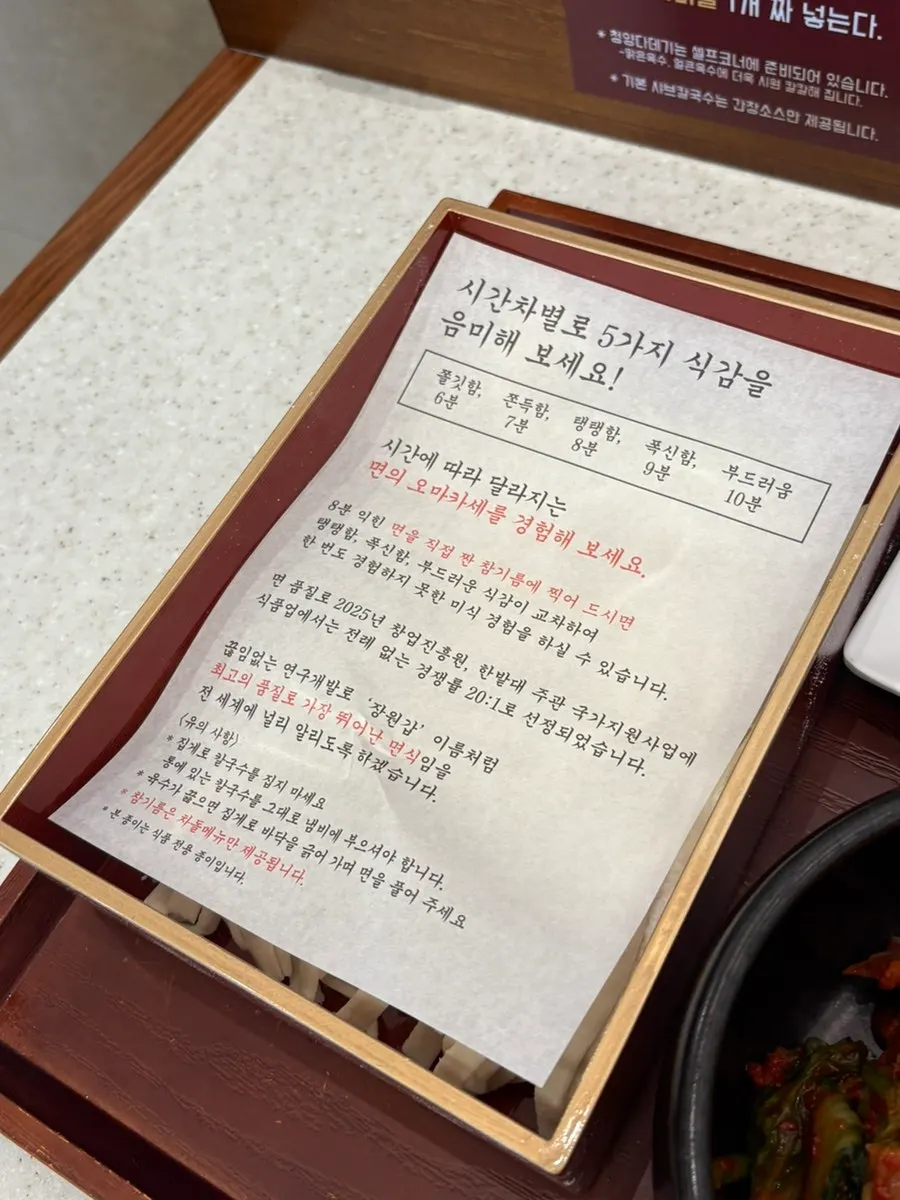 1개 짜 넣는다.
* 청양다데기는 셀프코너에 준비되어 있습니다.
-맑은육수, 얼큰육수에 더욱 시원 칼칼해 집니다.
* 기본 샤브칼국수는 간장소스만 제공됩니다.
시간차별로 5가지 식감을
음미해 보세요!
쫄깃함, 쫀득함, 탱탱함, 폭신함, 부드러움
6분 7분 8분 9분 10분
시간에 따라 달라지는
면의 오마카세를 경험해 보세요.
8분 익힌 면을 직접 짠 참기름에 찍어 드시면
탱탱함, 폭신함, 부드러운 식감이 교차하여
한 번도 경험하지 못한 미식 경험을 하실 수 있습니다.
면 품질로 2025년 창업진흥원, 한밭대 주관 국가지원사업에
식품업에서는 전례 없는 경쟁률 20:1로 선정되었습니다.
끊임없는 연구개발로 '장원갑' 이름처럼
최고의 품질로 가장 뛰어난 면식임을
전 세계에 널리 알리도록 하겠습니다.
〈유의 사항〉
* 집게로 칼국수를 집지 마세요
통에 있는 칼국수를 그대로 냄비에 부으셔야 합니다.
* 육수가 끓으면 집게로 바닥을 긁어 가며 면을 풀어 주세요
* 참기름은 차돌메뉴만 제공됩니다.
* 본 종이는 식품 전용 종이입니다.